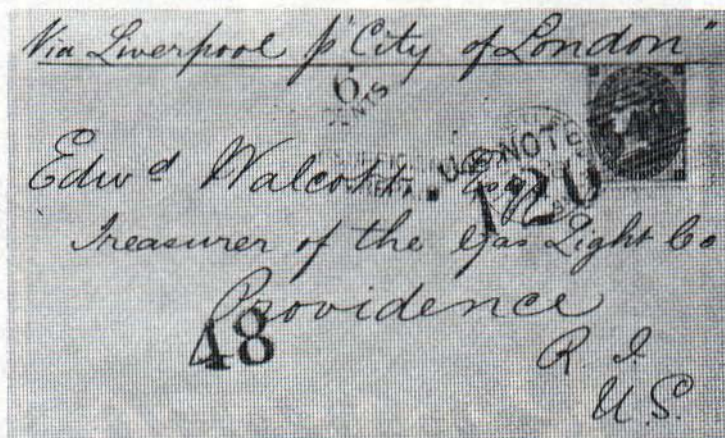 Via Liverpool p "City of London"
6
CENTS
U.S. NOTES
120
Edwd Walcott, Esq
Treasurer of the Gas Light Co
Providence
48
R. I.
U.S.